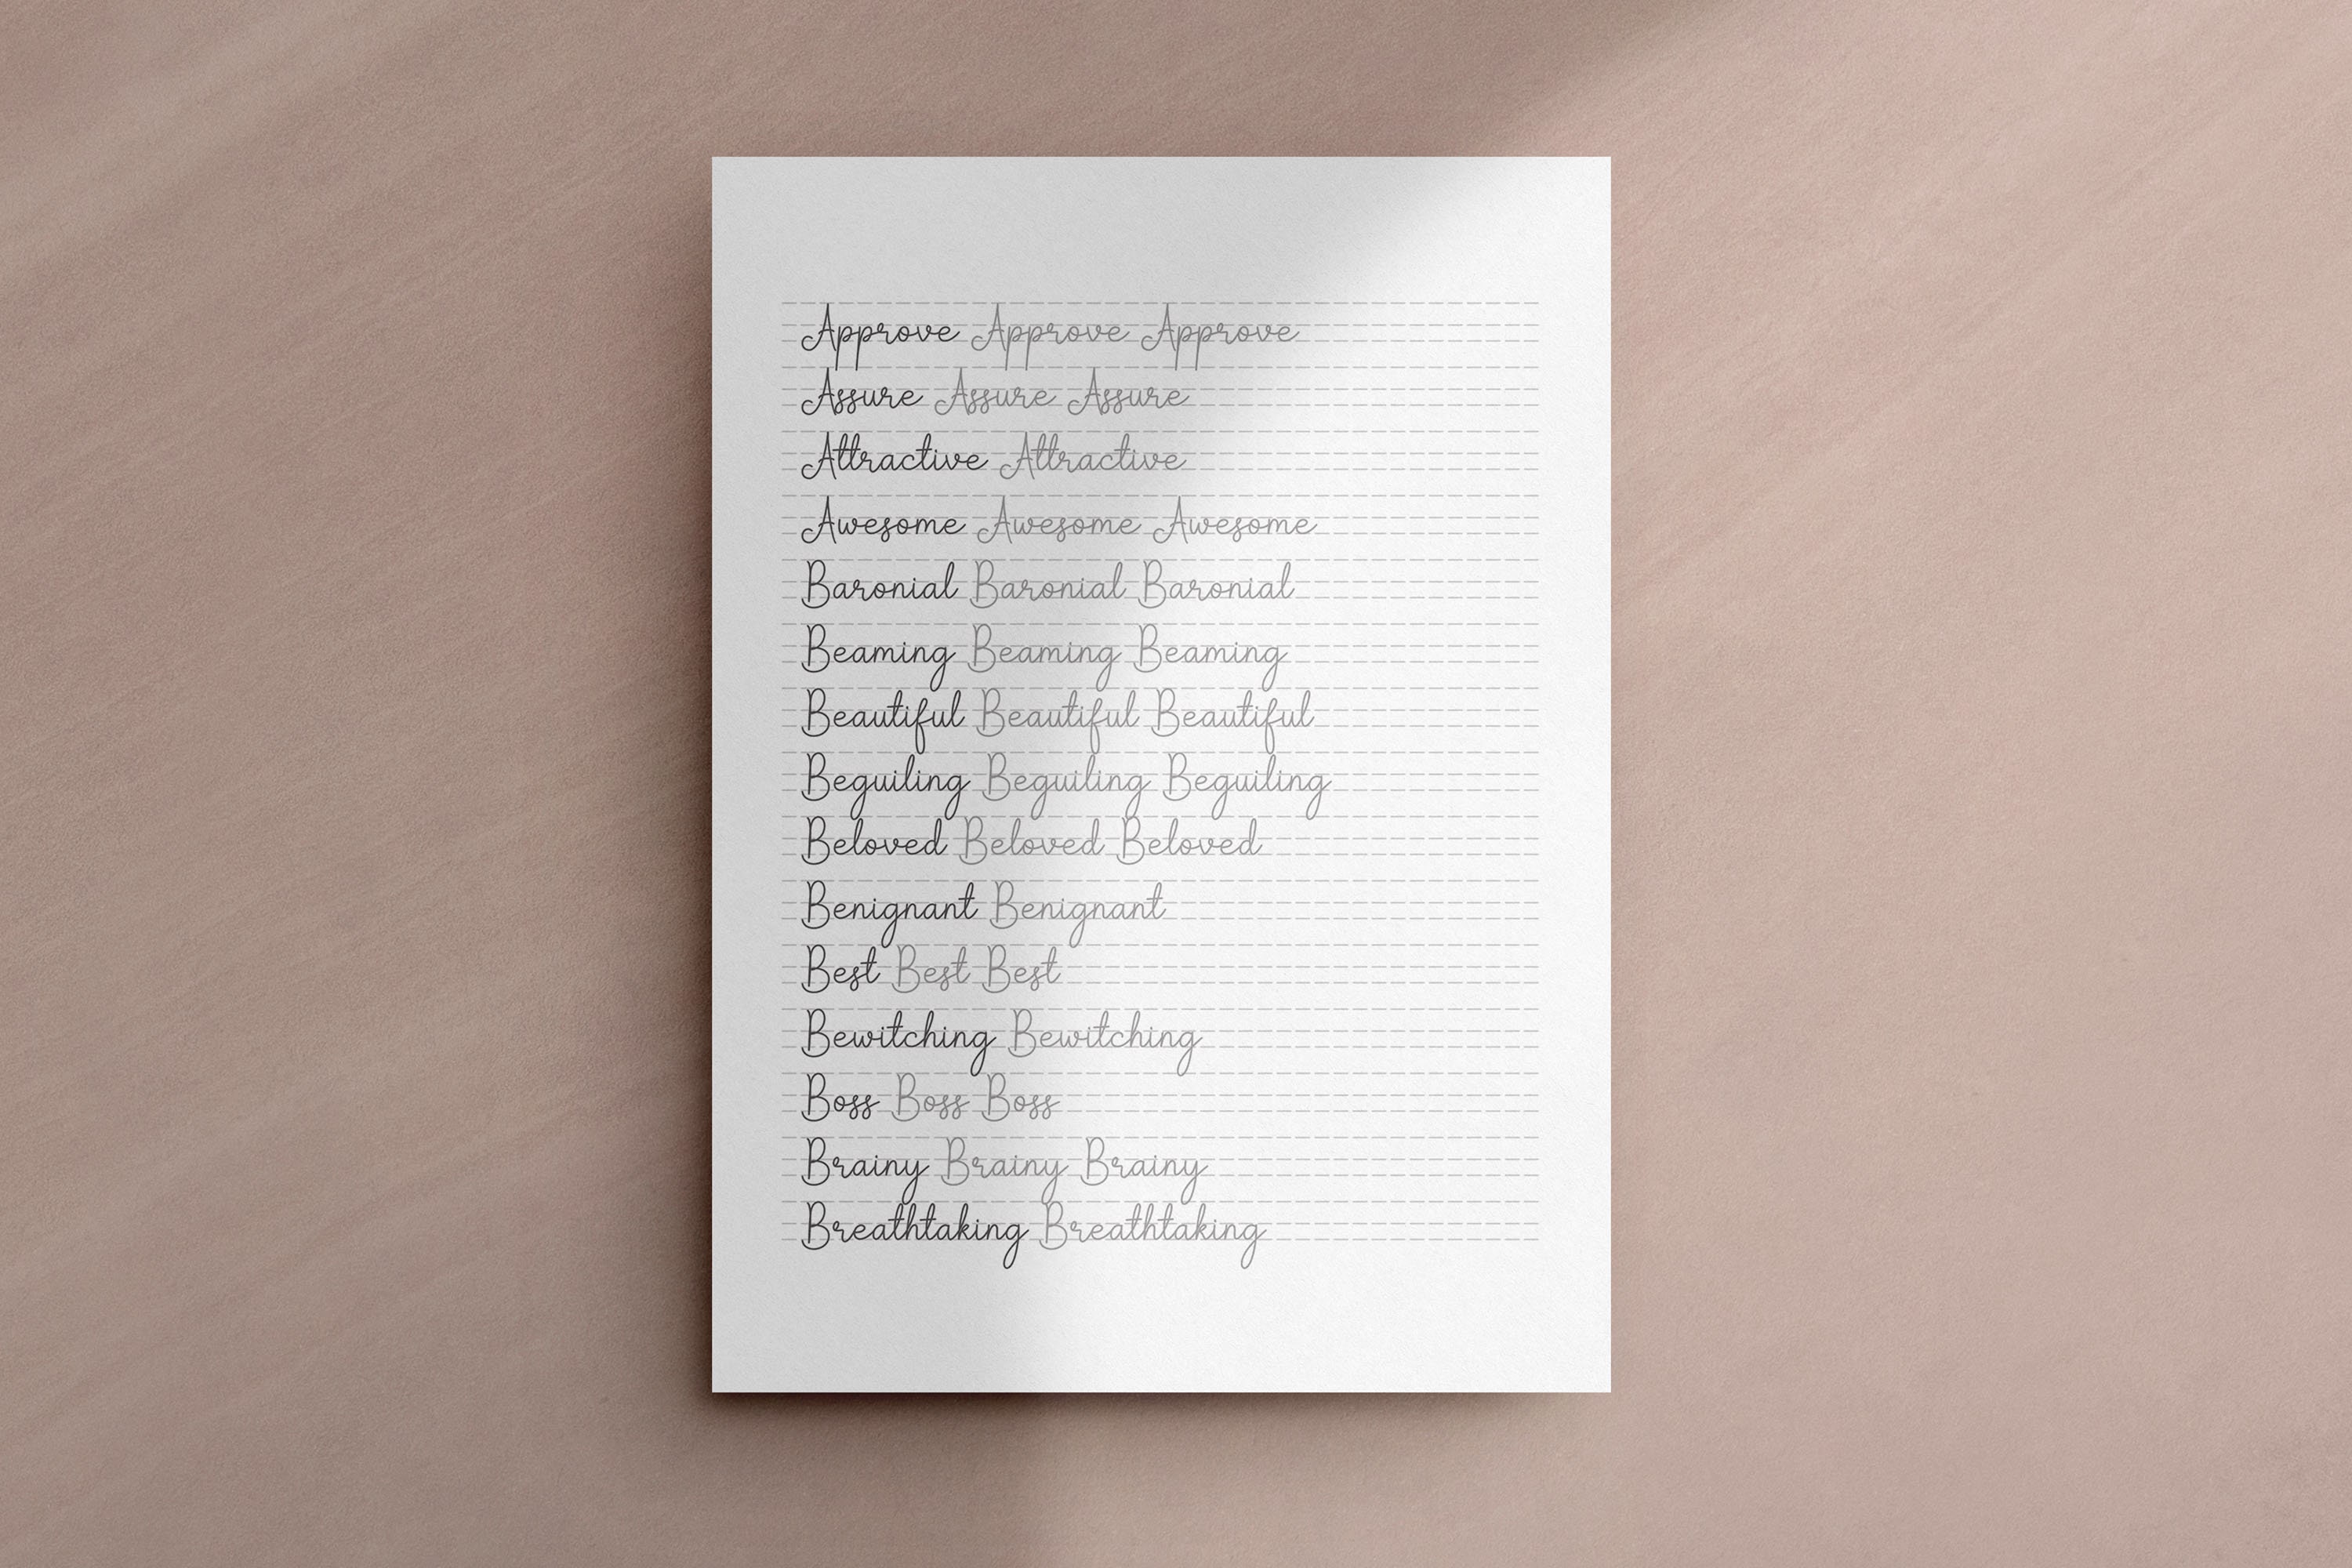 Approve Approve Approve
Assure Assure Assure
Attractive Attractive
Awesome Awesome Awesome
Baronial Baronial Baronial
Beaming Beaming Beaming
Beautiful Beautiful Beautiful
Beguiling Beguiling Beguiling
Beloved Beloved Beloved
Benignant Benignant
Best Best Best
Bewitching Bewitching
Boss Boss Boss
Brainy Brainy Brainy
Breathtaking Breathtaking